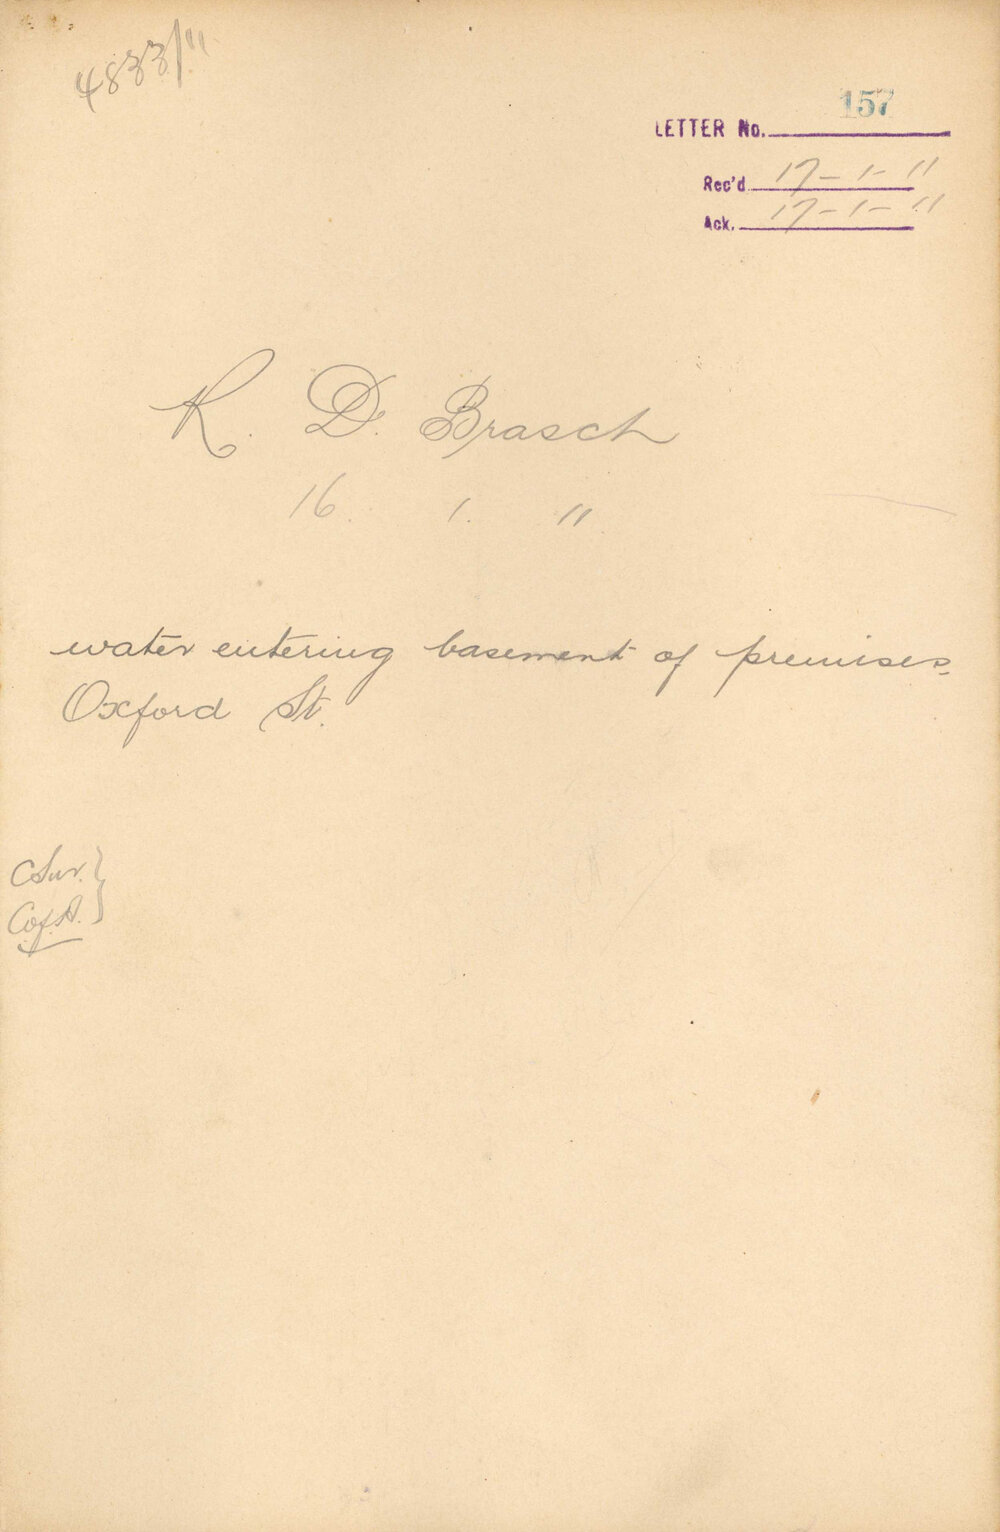 4833/11
LETTER No. 157
Rec'd 17-1-11
Ack. 17-1-11
R. D. Brasch
16. 1. 11
water entering basement of premises,
Oxford St.
C Sur.
C of A.